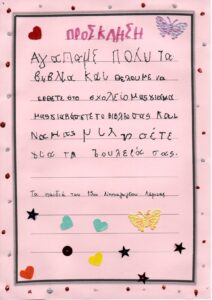 ΠΡΟΣΚΛΗΣΗ
Αγαπαμε Πολυ τα
βιβλια και θελουμε να
ερθετε στο σχολειο μας για να
μας διαβασετε το βιβλιο σας και
Να μας μιλησετε
για τη δουλεια σας.
Τα παιδιά του 13ου Νηπιαγωγείου Λάρισας